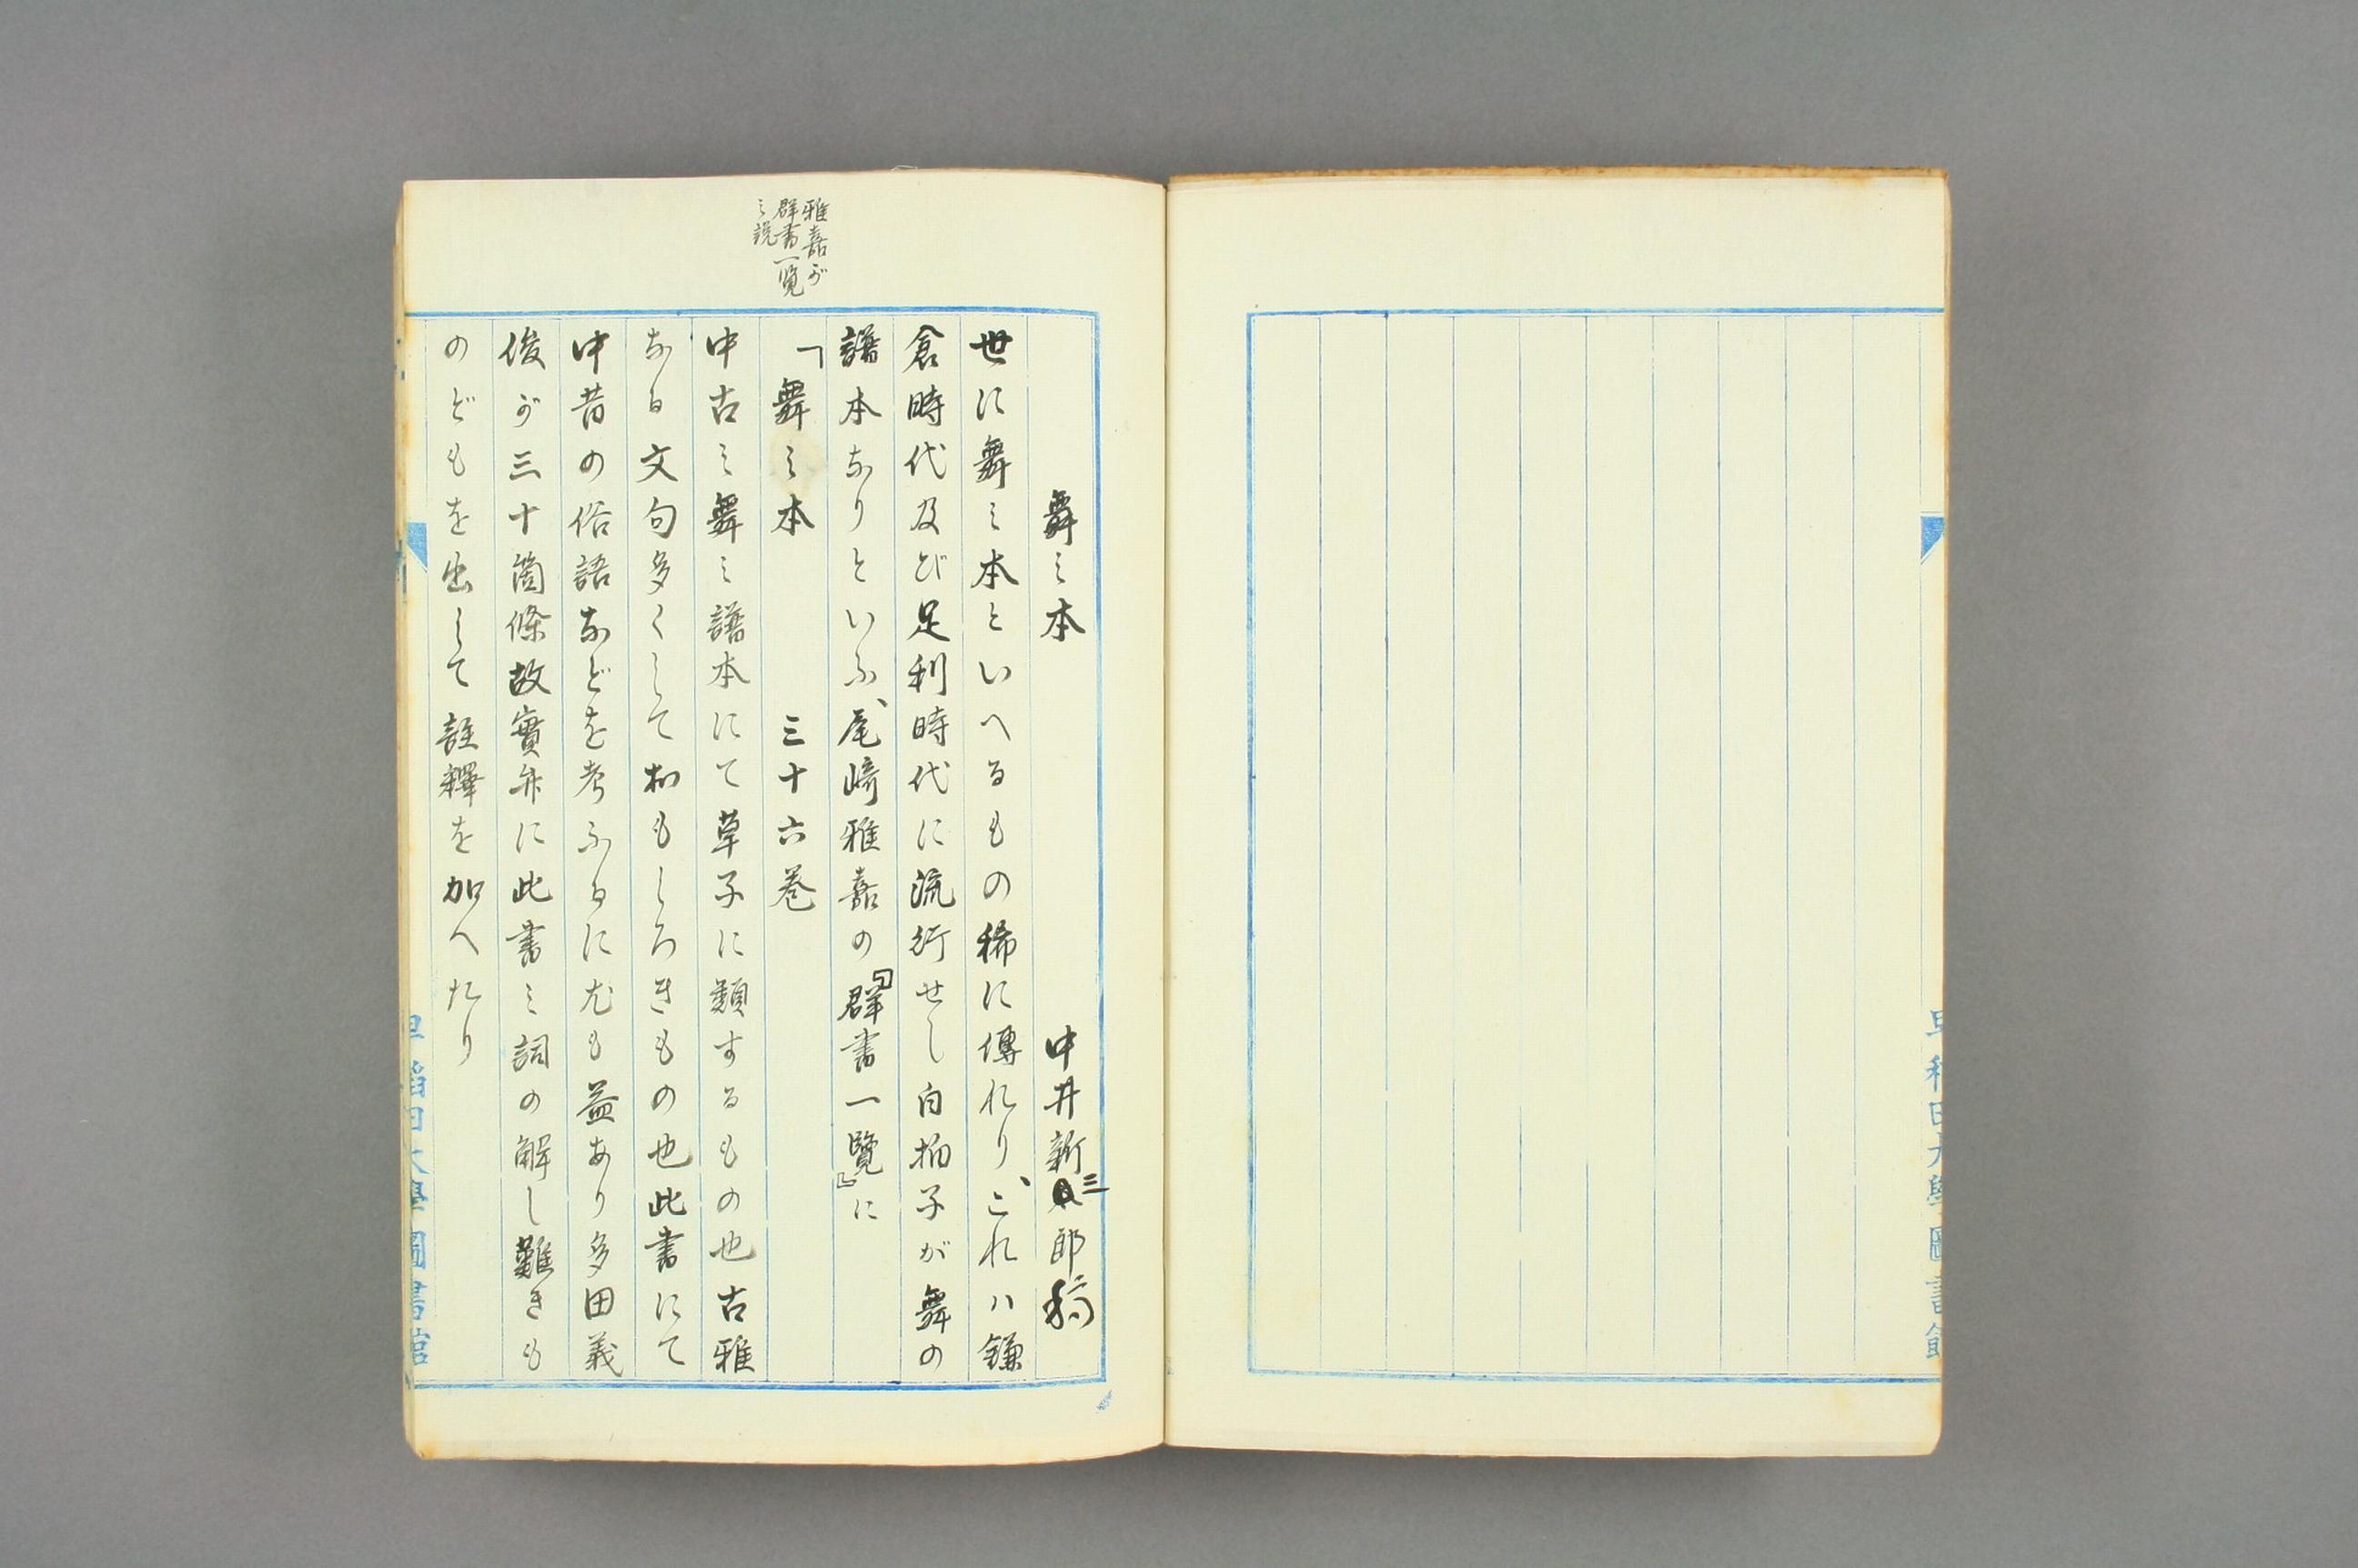 雅嘉が
群書一覧
之説
舞之本
中井新三郎稿
世に舞之本といへるもの稀に傳れり、これハ鎌
倉時代及び足利時代に流行せし白拍子が舞の
譜本なりといふ、尾崎雅嘉の『群書一覧』に
「舞之本 三十六巻
中古之舞之譜本にて草子に類するもの也古雅
なる文句多くしておもしろきもの也此書にて
中昔の俗語などを考ふるに尤も益あり多田義
俊が三十箇條故實并に此書之詞の解し難きも
のどもを出して註釋を加へたり
早稲田大學圖書館
早稲田大學圖書館